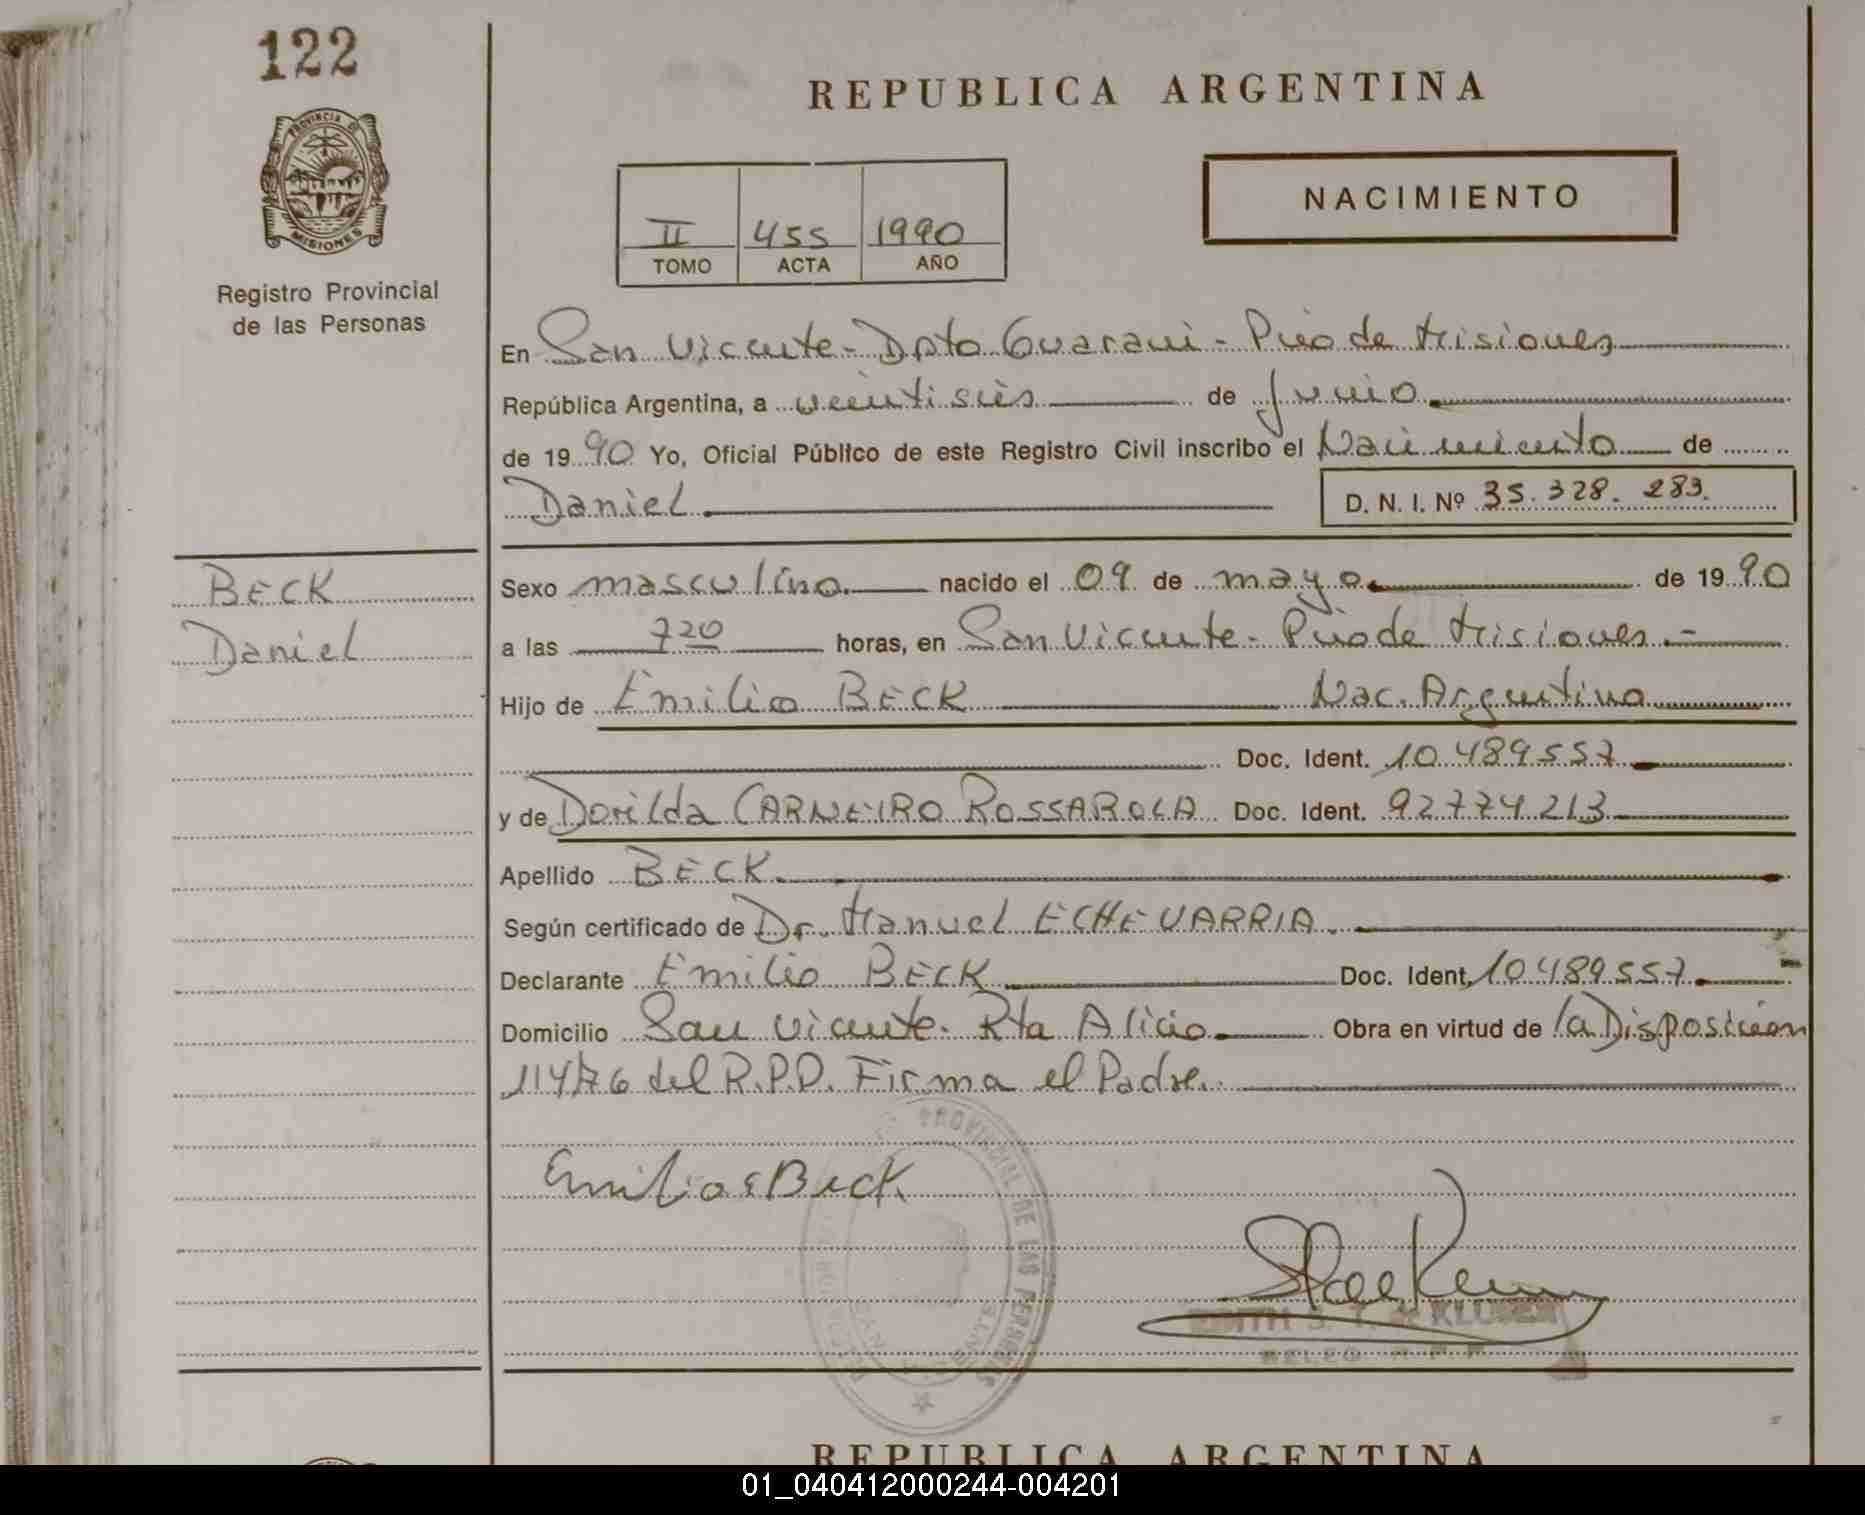 122
PROVINCIA DE
MISIONES
Registro Provincial
de las Personas
REPUBLICA ARGENTINA
NACIMIENTO
II 455 1990
TOMO ACTA AÑO
En San Vicente - Dpto Guarani - Pcia de Misiones
República Argentina, a veintiseis de Junio
de 1990 Yo, Oficial Público de este Registro Civil inscribo el Nacimiento de
Daniel D. N. I. Nº 35.328.283.
BECK
Daniel
Sexo masculino nacido el 09 de mayo de 1990
a las 720 horas, en San Vicente - Pcia de Misiones.-
Hijo de Emilio BECK Nac. Argentina
Doc. Ident. 10.489.557
y de Dorilda CARNEIRO ROSSAROLA Doc. Ident. 92.774.213
Apellido BECK.
Según certificado de Dr. Manuel ECHEVARRIA.
Declarante Emilio BECK Doc. Ident. 10.489.557.
Domicilio San Vicente. Rta Alicia Obra en virtud de la Disposicion
114/76 del R.P.P. Firma el Padre.
Emilio Beck
PROVINCIAL DE LAS PERSONAS
SAN VICENTE
S. T. de KLUBEN
DELEG. R.P.P.
REPUBLICA ARGENTINA
01_040412000244-004201